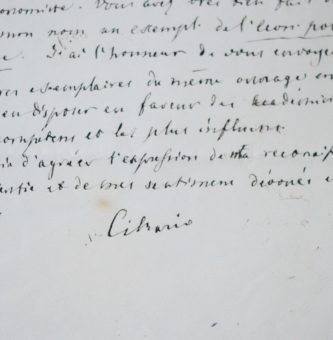 onomiste. Vous avez très bien fait
mon nom un exempl. de l'écon. pol
J'ai l'honneur de vous envoyer
res exemplaires du même ouvrage en
en disposer en faveur des académi
compétens et les plus influens.
d'agréer l'expression de ma reconais
et de mes sentimens dévoués
Cibrario